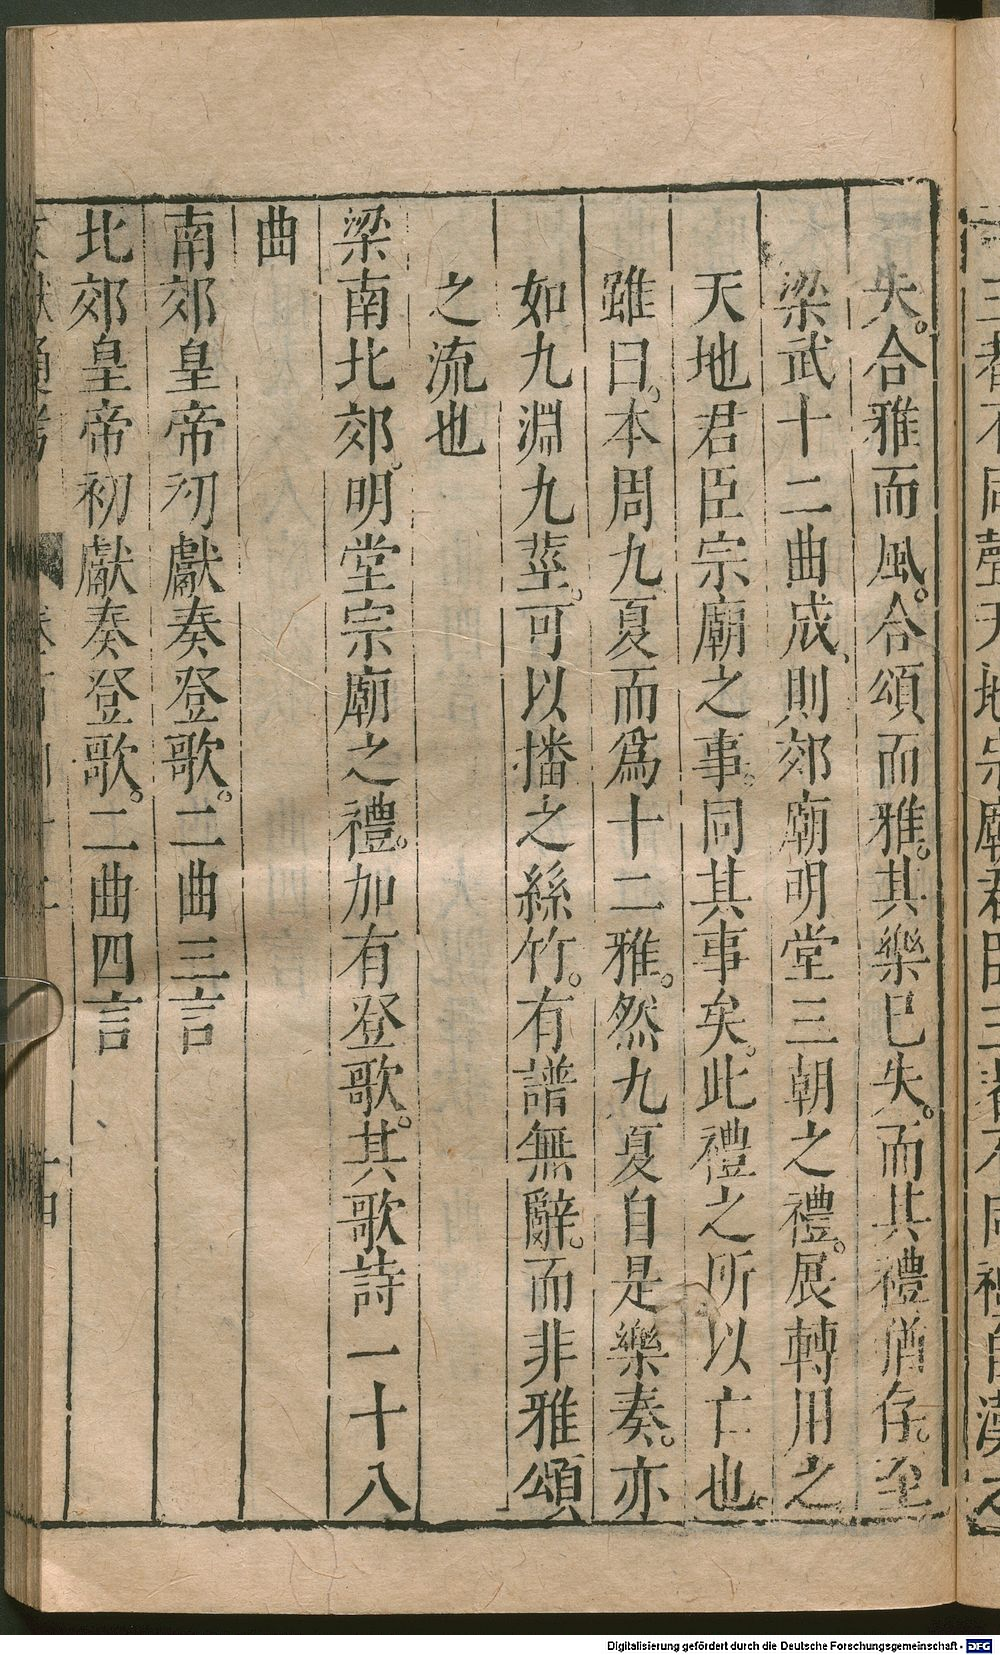 失。合雅而風。合頌而雅。其樂已失。而其禮猶存。至
梁武十二曲成、則郊廟明堂三朝之禮。展轉用之
天地君臣宗廟之事。同其事矣。此禮之所以亡也。
雖曰。本周九夏而爲十二雅。然九夏自是樂奏。亦
如九淵九莖。可以播之絲竹。有譜無辭。而非雅頌
之流也
梁南北郊。明堂宗廟之禮。加有登歌。其歌詩一十八
曲
南郊皇帝初獻奏登歌。二曲三言
北郊皇帝初獻奏登歌。二曲四言
Digitalisierung gefördert durch die Deutsche Forschungsgemeinschaft - DFG